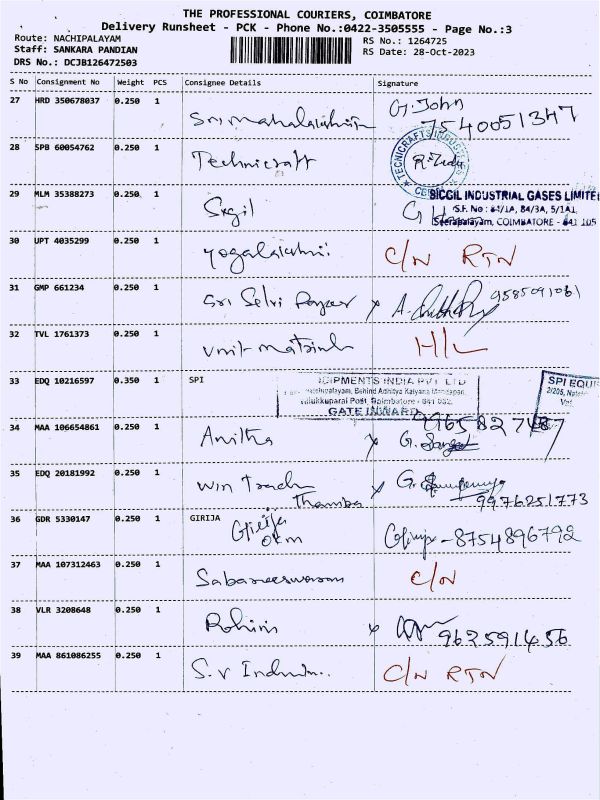 THE PROFESSIONAL COURIERS, COIMBATORE
Delivery Runsheet - PCK - Phone No.:0422-3505555 - Page No.:3
Route: NACHIPALAYAM
RS No.: 1264725
Staff: SANKARA PANDIAN
RS Date: 28-Oct-2023
DRS No.: DCJB126472503
S No Consignment No Weight PCS Consignee Details Signature
27 HRD 350678037 0.250 1 G. John
7540051347
28 SPB 60054762 0.250 1 Technicraft
29 MLM 35388273 0.250 1 SICGIL INDUSTRIAL GASES LIMITE
S.F. No : 84/1A, 84/3A, 5/1A1,
Seerapalayam, COIMBATORE - 641 105
30 UPT 4035299 0.250 1 Yogalakshmi C/N RTN
31 GMP 661234 0.250 1 Sri Selvi x A. 9585091061
32 TVL 1761373 0.250 1 H/L
33 EDQ 10216597 0.350 1 SPI
IPMENTS INDIA PVT LTD
Behind Adhitya Kalyana Mandapan,
Post, Coimbatore - 641 032.
GATE INWARD
SPI EQUI
2/205,
34 MAA 106654861 0.250 1 Anitha x G.
35 EDQ 20181992 0.250 1 Win Track x G.
Thamba 9976251773
36 GDR 5330147 0.250 1 GIRIJA
Girija Girija - 8754896792
OKM
37 MAA 107312463 0.250 1 Sabareeswaran C/N
38 VLR 3208648 0.250 1 Rohini x 962591456
39 MAA 861086255 0.250 1 S.V C/N RTN